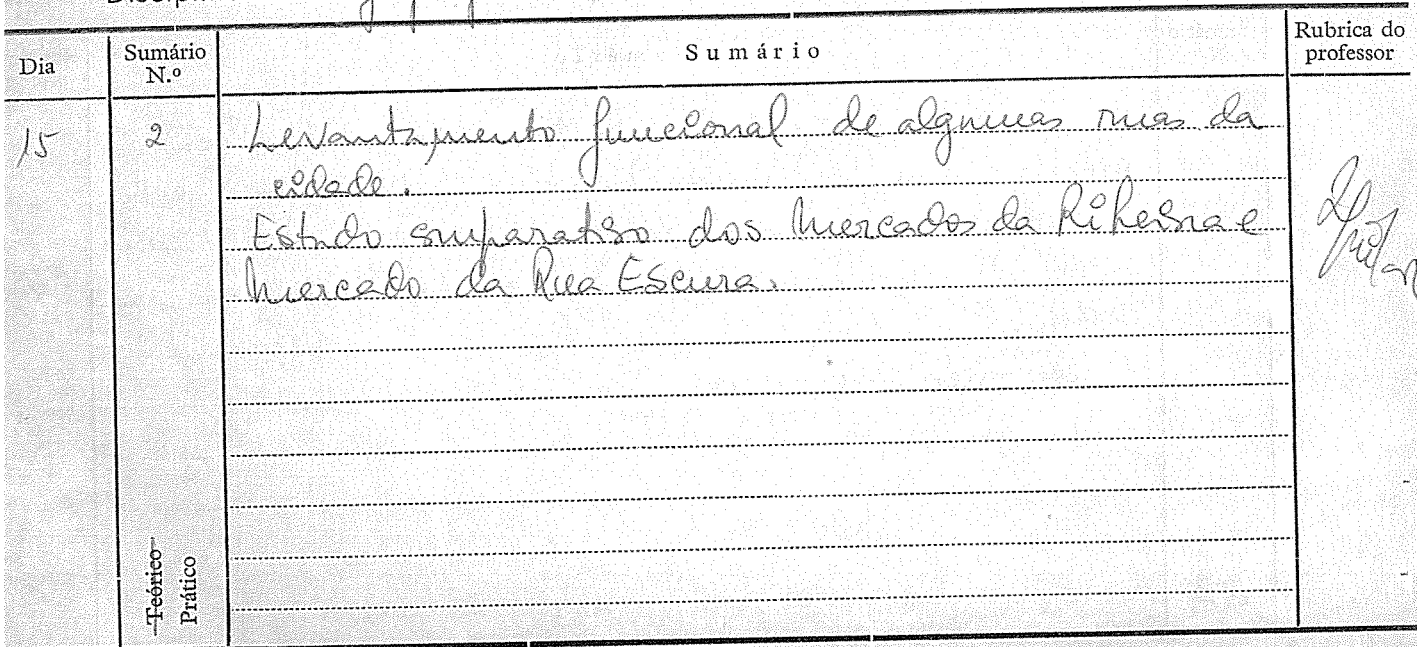 Dia
Sumário N.º
Sumário
Rubrica do professor
15
2
Levantamento funcional de algumas ruas da
cidade.
Estudo comparativo dos Mercados da Ribeira e
Mercado da Rua Escura.
Teórico
Prático